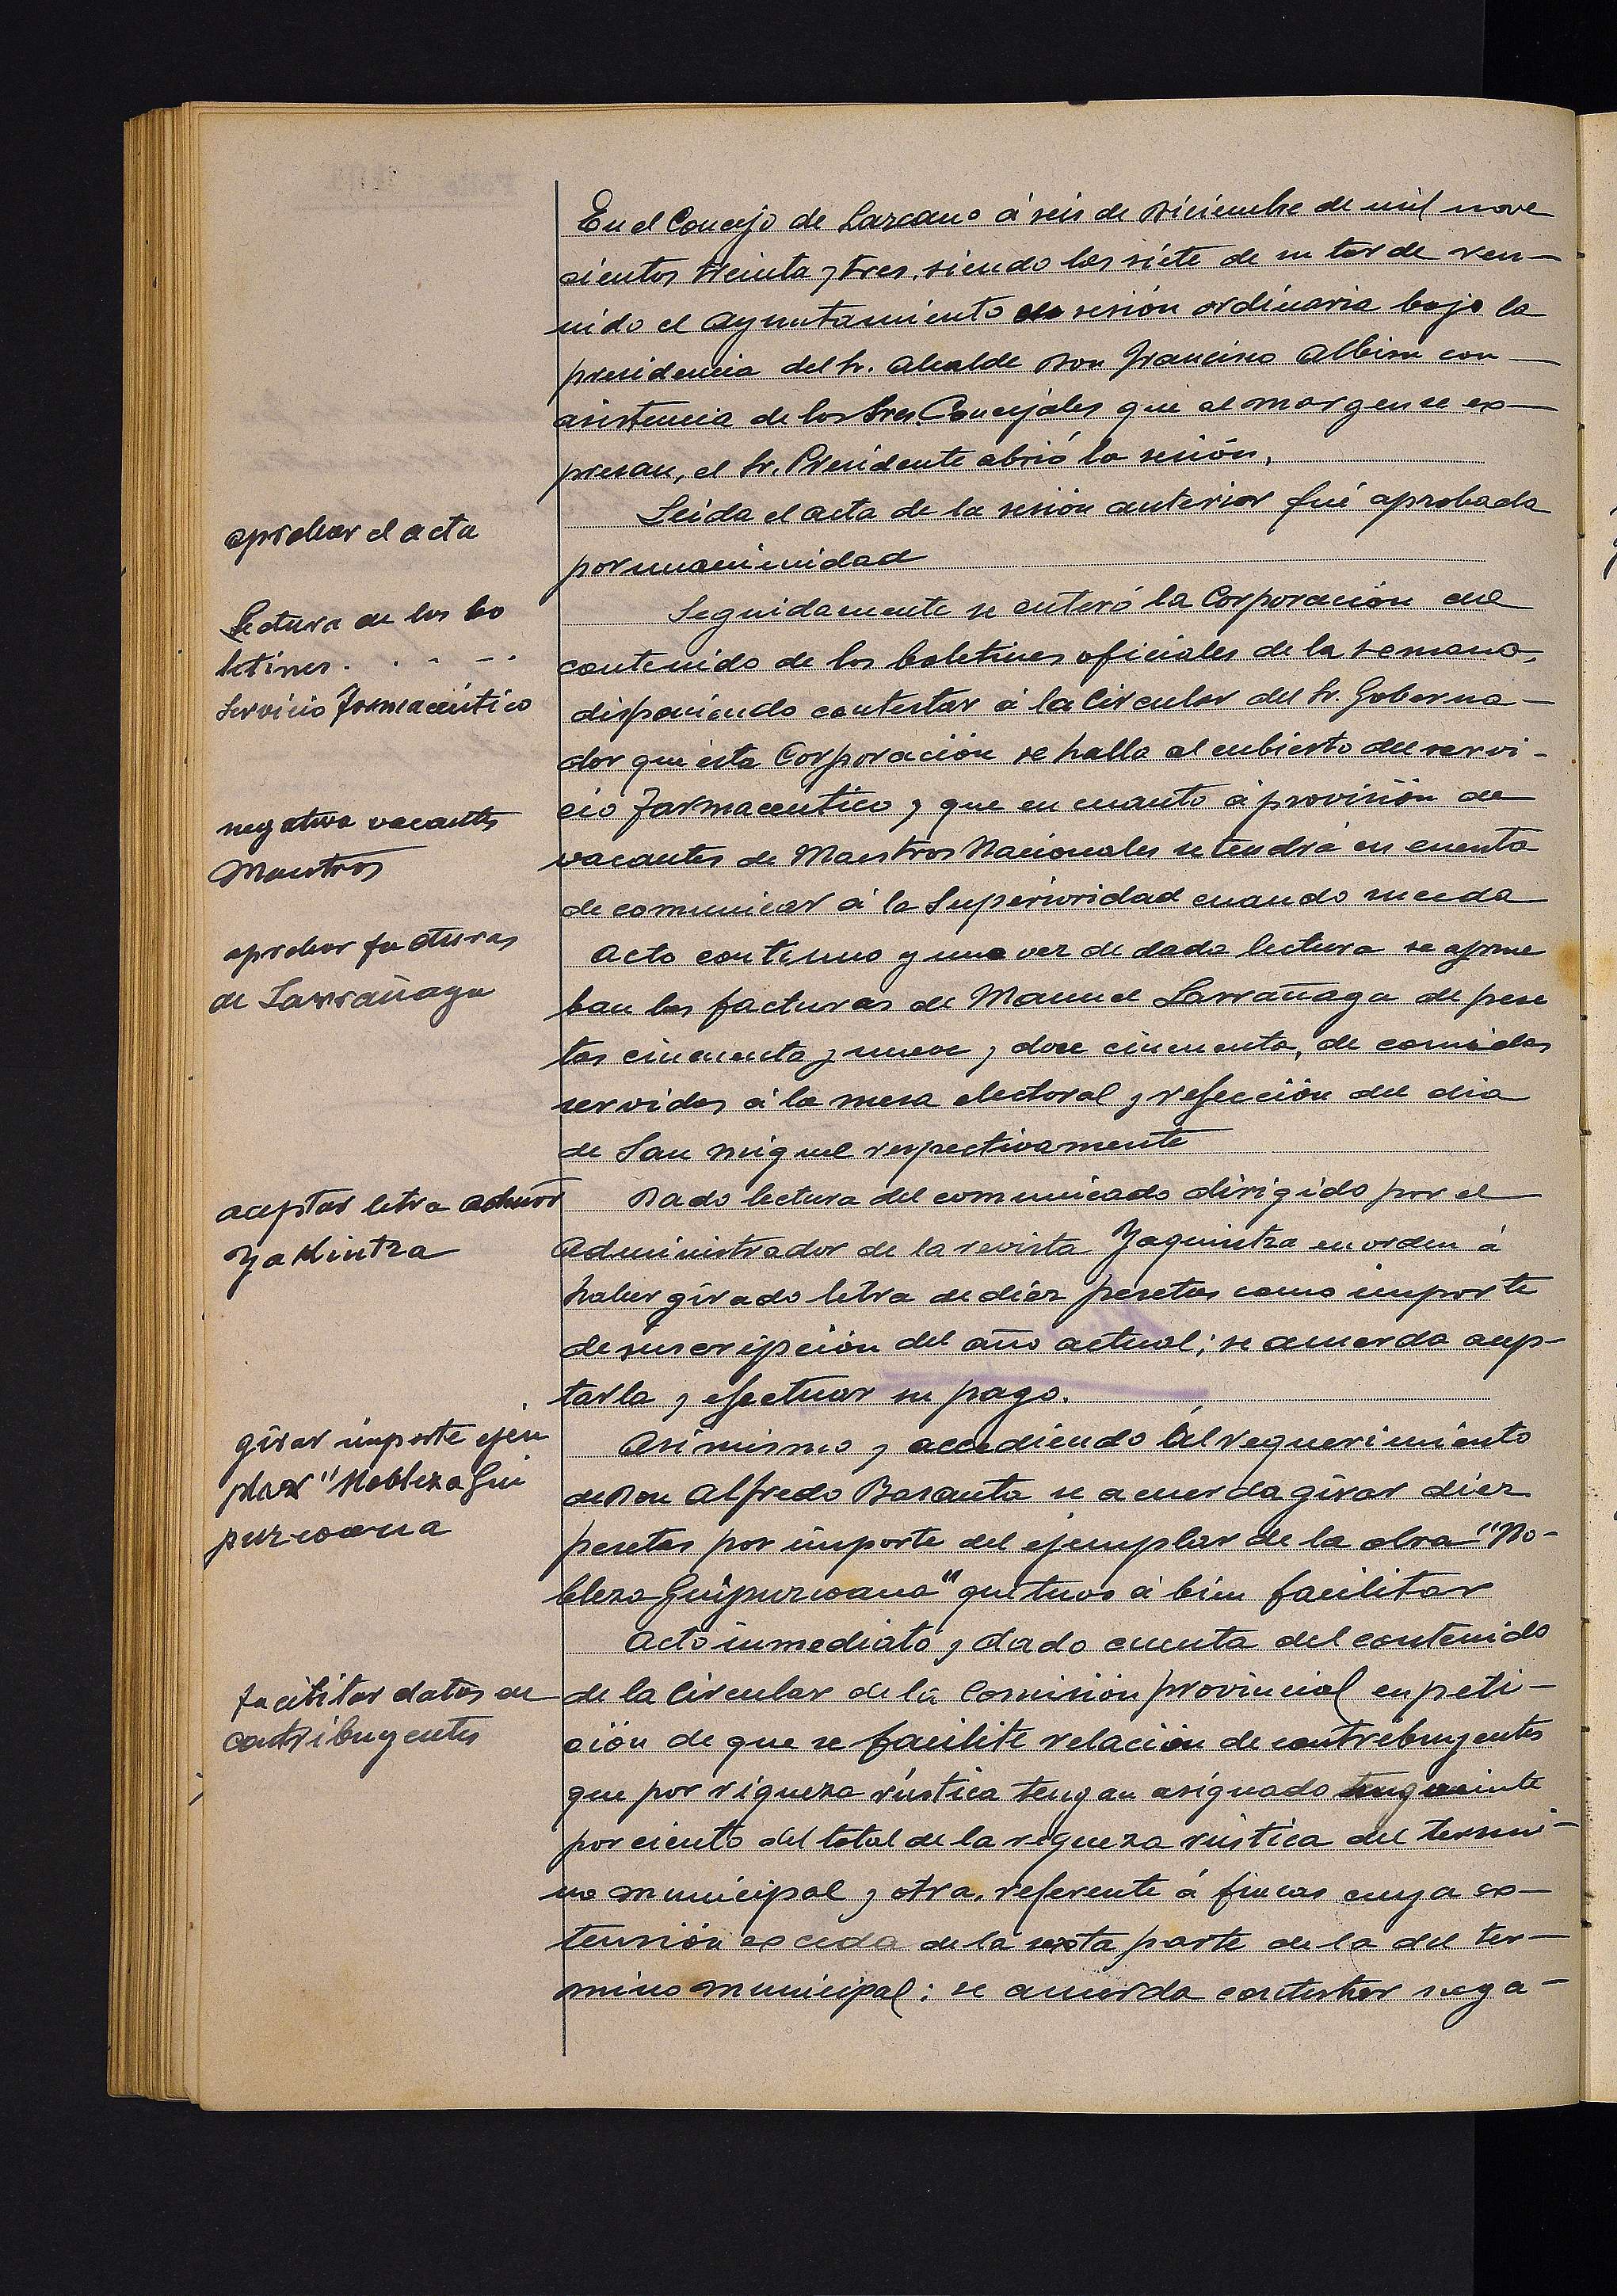 En el Concejo de Lazcano á seis de Diciembre de mil nove
cientos treinta y tres, siendo las siete de su tarde reu-
nido el Ayuntamiento en sesión ordinaria bajo la
presidencia del Sr. Alcalde Don Francisco Albisu con
asistencia de los Sres. Concejales que al margen se ex-
presan, el Sr. Presidente abrió la sesión.
aprobar el acta
Leida el acta de la sesión anterior fué aprobada
por unanimidad
Lectura de los bo
letines . . - - .
Servicio Farmacéutico
Seguidamente se enteró la Corporación del
contenido de los boletines oficiales de la semana,
disponiendo contestar á la Circular del Sr. Goberna-
dor que ésta Corporación se halla al cubierto del servi-
cio farmaceutico y que en cuanto á provisión de
negativa vacantes
Maestros
vacantes de Maestros Nacionales se tendrá en cuenta
de comunicar á la Superioridad cuando suceda
aprobar facturas
de Larrañaga
Acto continuo y una vez de dada lectura se aprue
ban las facturas de Manuel Larrañaga de pese
tas cincuenta y nueve y doce cincuenta, de comidas
servidas á la mesa electoral y refección del dia
de San Miguel respectivamente
aceptar letra admor
Yakintza
Dado lectura del comunicado dirigido por el
Administrador de la revista Yaquintza en orden á
haber girado letra de diez pesetas como importe
de suscripción del año actual; se acuerda acep-
tarla y efectuar su pago.
girar importe ejem
plar "Nobleza Gui
puzcoana
Asimismo y accediendo al requerimiento
de Don Alfredo Basanta se acuerda girar diez
pesetas por importe del ejemplar de la obra "No-
bleza Guipuzcoana" que tuvo á bien facilitar
Acto inmediato y dado cuenta del contenido
facilitar datos de
contribuyentes
de la Circular de la Comisión provincial en peti-
ción de que se facilite relación de contribuyentes
que por riqueza rústica tengan asignado veinte
por ciento del total de la riqueza rústica del termi-
no municipal y otra, referente á fincas cuya ex-
tensión exceda de la sexta parte de la del ter-
mino municipal; se acuerda contestar nega-